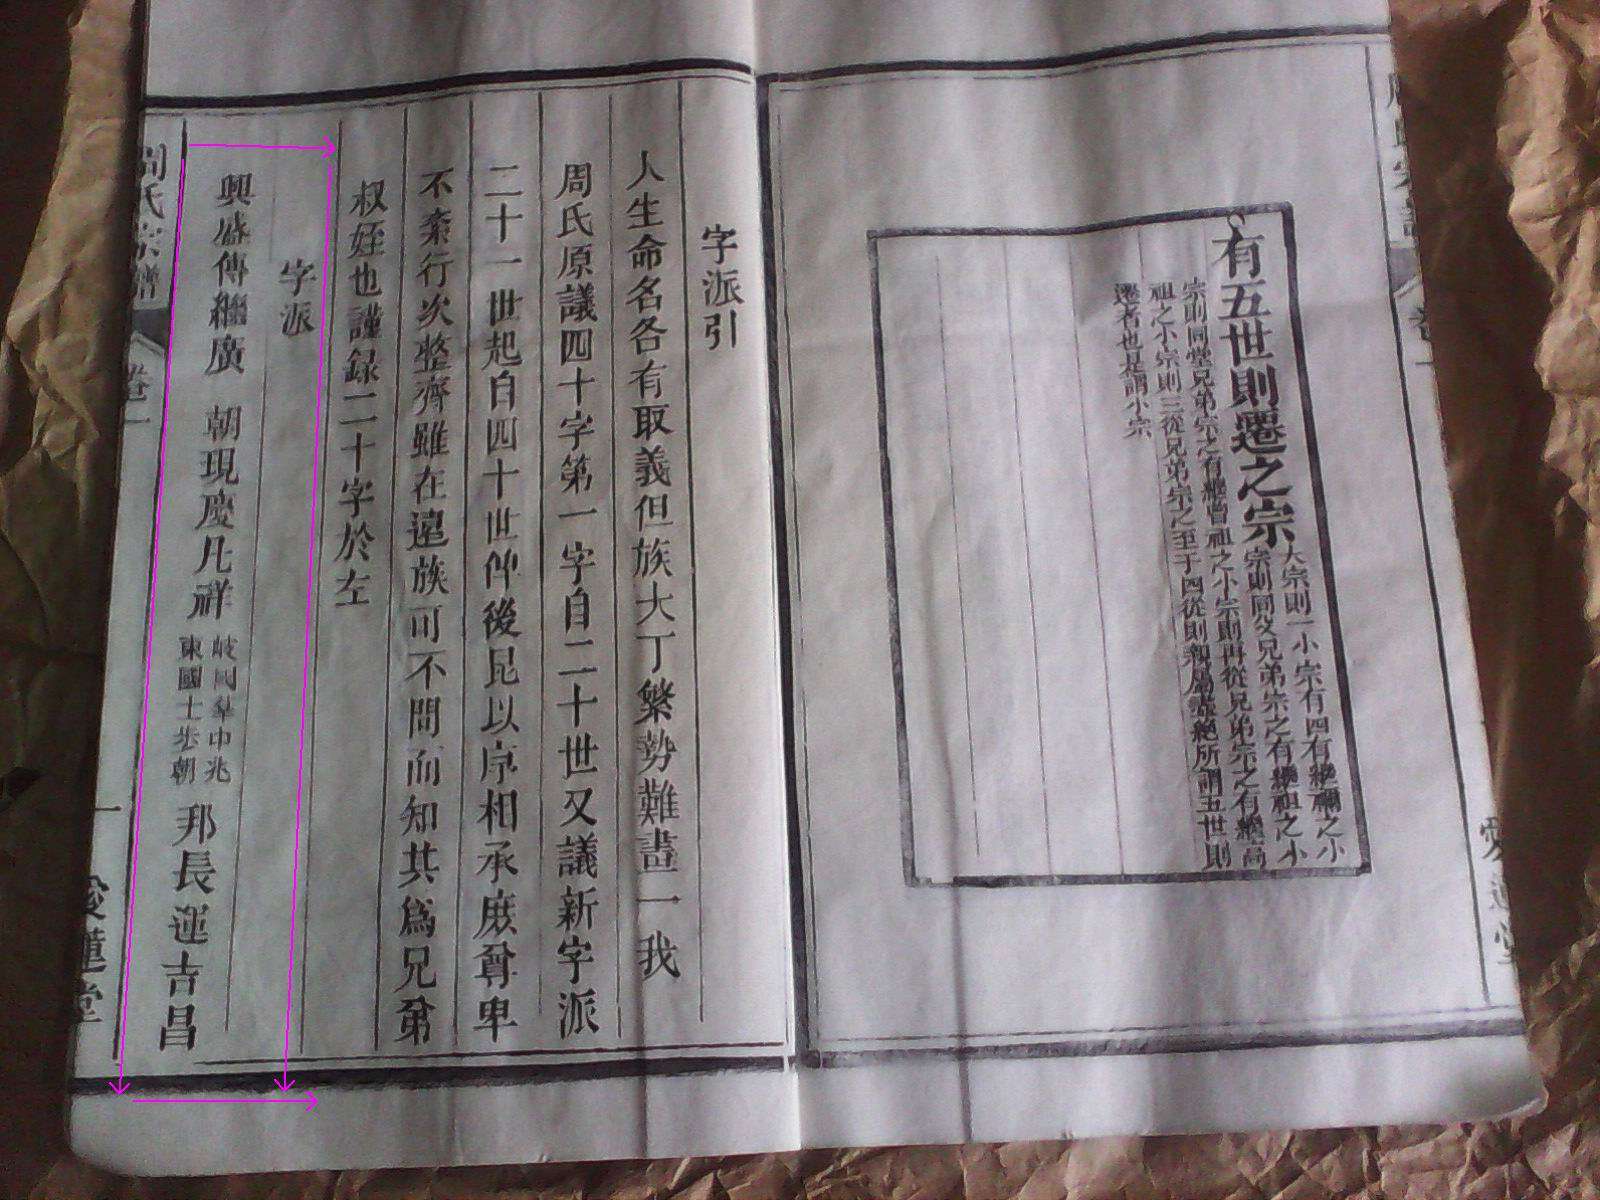 有五世則遷之宗
大宗則一小宗有四有繼禰之小
宗則同父兄弟宗之有繼祖之小
宗則同堂兄弟宗之有繼曾祖之小宗則再從兄弟宗之有繼高
祖之小宗則三從兄弟宗之至于四從則親屬盡絕所謂五世則
遷者也是謂小宗
字派引
人生命名各有取義但族大丁繁勢難畫一我
周氏原議四十字第一字自二十世又議新字派
二十一世起自四十世伸後昆以序相承庶尊卑
不紊行次整齊雖在遠族可不問而知共為兄弟
叔姪也謹録二十字於左
字派
興盛傳繼廣 朝現慶凡祥
岐 羣中兆
東國士 朝
邦長運吉昌
周氏宗譜 卷一 一 愛蓮堂